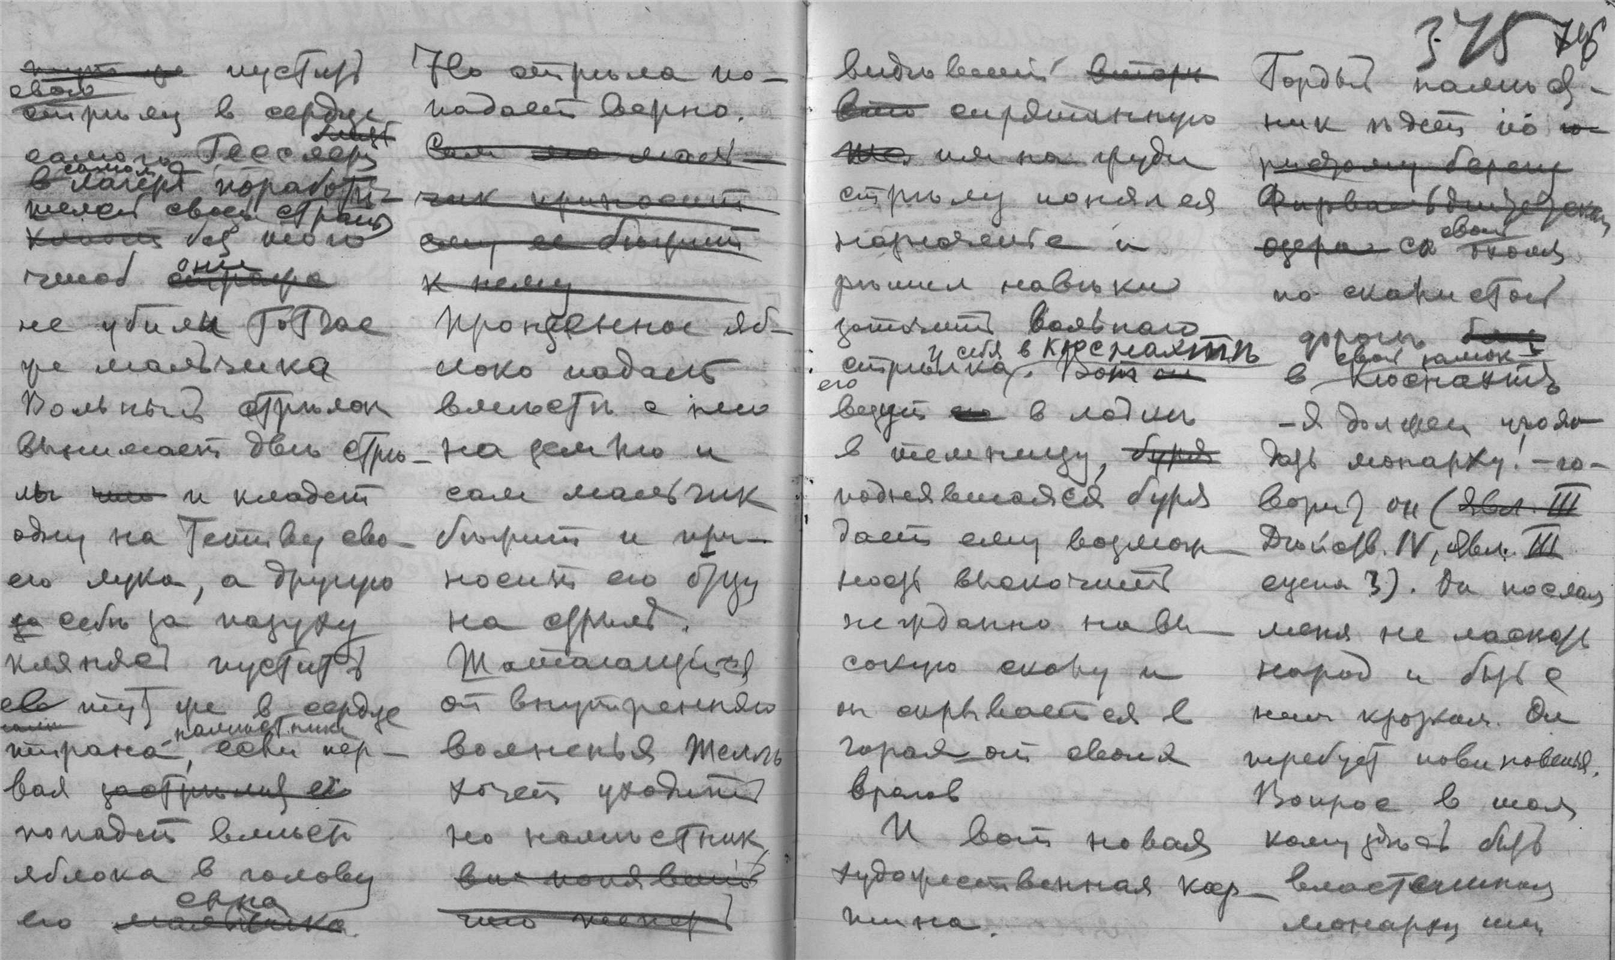 375
пустить
свою
стрелу в сердце
самого Гесслера
в лагерь поработи-
телей своей страны
без того
чтоб они
не убили тотчас
же мальчика
Вольный стрѣлок
вынимает двѣ стрѣ-
лы и кладет
одну на тетиву сво-
его лука, а другую
себѣ за пазуху
клянясь пустить
ее тут же в сердце
намѣстника
тирана, если пер-
вая
попадет вмѣсто
яблока в голову
сына
его мальчика
Но стрѣла по-
падает вѣрно.
Сам мальчик
чик приносит
ему бѣжит
к нему
Пронзенное яб-
локо падает
вмѣстѣ с нею
на землю и
сам мальчик
бѣжит и при-
носит его отцу
на стрѣлѣ.
Шатающийся
от внутренняго
волненья Телль
хочет уходить
но намѣстник,
видѣвший
спрятанную
им на груди
стрѣлу понял ея
назначение и
рѣшил навѣки
заточить вольнаго
у себя в Кюснахтѣ
стрѣлка. Вот
его
ведут в лодкѣ
в темницу, буря
поднявшаяся буря
дает ему возмож-
ность выскочить
нежданно на вы-
сокую скалу и
он скрывается в
горах от своих
врагов
И вот новая
художественная кар-
тина.
Гордый намѣст-
ник ѣдет по
берегу
Фирвальдштетскаго
озера со свои
по скалистой
дорогѣ
в свой замок
Кюснахтъ
- Я должен угож-
дать монарху! - го-
ворит он (явл. III
Дѣйств. IV, явл. III
сцена 3). Он послал
меня не ласкать
народ и быть с
ним кротким. Он
требует повиновенья.
Вопрос в том
кому здѣсь быть
властелином
монарху или